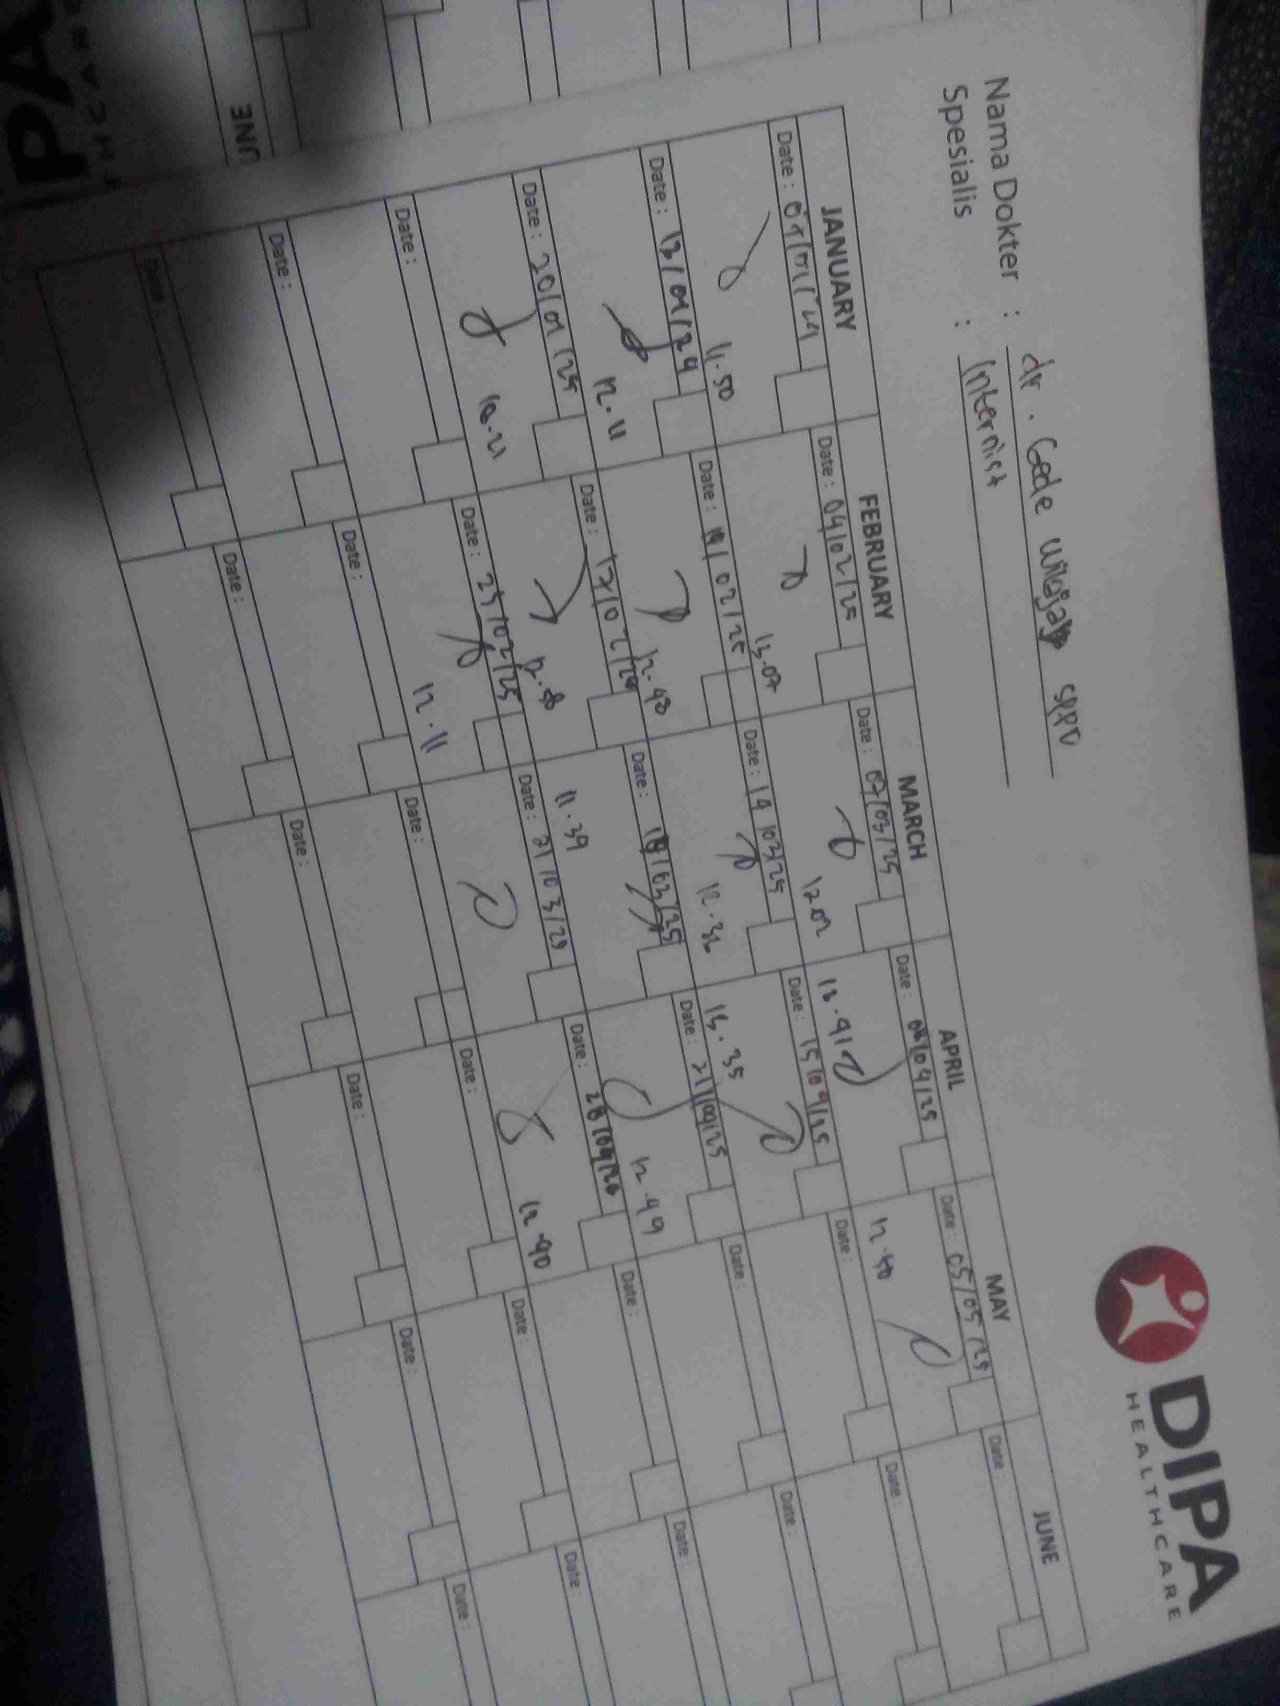 DIPA
HEALTHCARE
Nama Dokter : dr. Gede Wijaya SPPD
Spesialis : Internist
JANUARY FEBRUARY MARCH APRIL MAY JUNE
Date : Date : 04/02/25 Date : 07/03/25 Date : 08/04/25 Date : 05/05/25 Date
11.50 13.07 12.02 12.50
Date : 13/01/24 Date : /02/25 Date : 14/03/25 Date : 15/04/25 Date : Date :
12.11 12.48 12.36 13.35
Date : 20/01/25 Date : 17/02/25 Date : 18/03/25 Date : 21/04/25 Date : Date :
11.39 12.49
Date : Date : 25/02/25 Date : 21/03/25 Date : 28/04/25 Date : Date :
12.11 12.40
Date : Date : Date : Date : Date : Date
Date : Date : Date : Date : Date : Date :
UNE